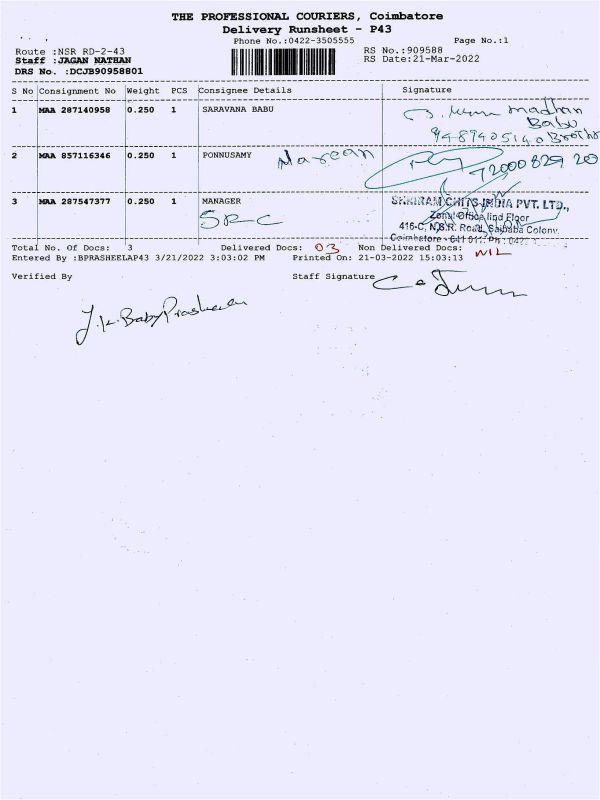 THE PROFESSIONAL COURIERS, Coimbatore
Delivery Runsheet - P43
Phone No.:0422-3505555 Page No.:1
Route :NSR RD-2-43 RS No.:909588
Staff :JAGAN NATHAN RS Date:21-Mar-2022
DRS No. :DCJB90958801
S No Consignment No Weight PCS Consignee Details Signature
1 MAA 287140958 0.250 1 SARAVANA BABU madhan
Babu
9489405140 Brother
2 MAA 857116346 0.250 1 PONNUSAMY 72000 829 20
3 MAA 287547377 0.250 1 MANAGER SHRIRAM CHITS INDIA PVT. LTD.,
SRC Zonal Office IInd Floor
416-C, N.S.R. Road, Saibaba Colony,
Coimbatore - 641 011. Ph : 0422
Total No. Of Docs: 3 Delivered Docs: 03 Non Delivered Docs: NIL
Entered By :BPRASHEELAP43 3/21/2022 3:03:02 PM Printed On: 21-03-2022 15:03:13
Verified By Staff Signature